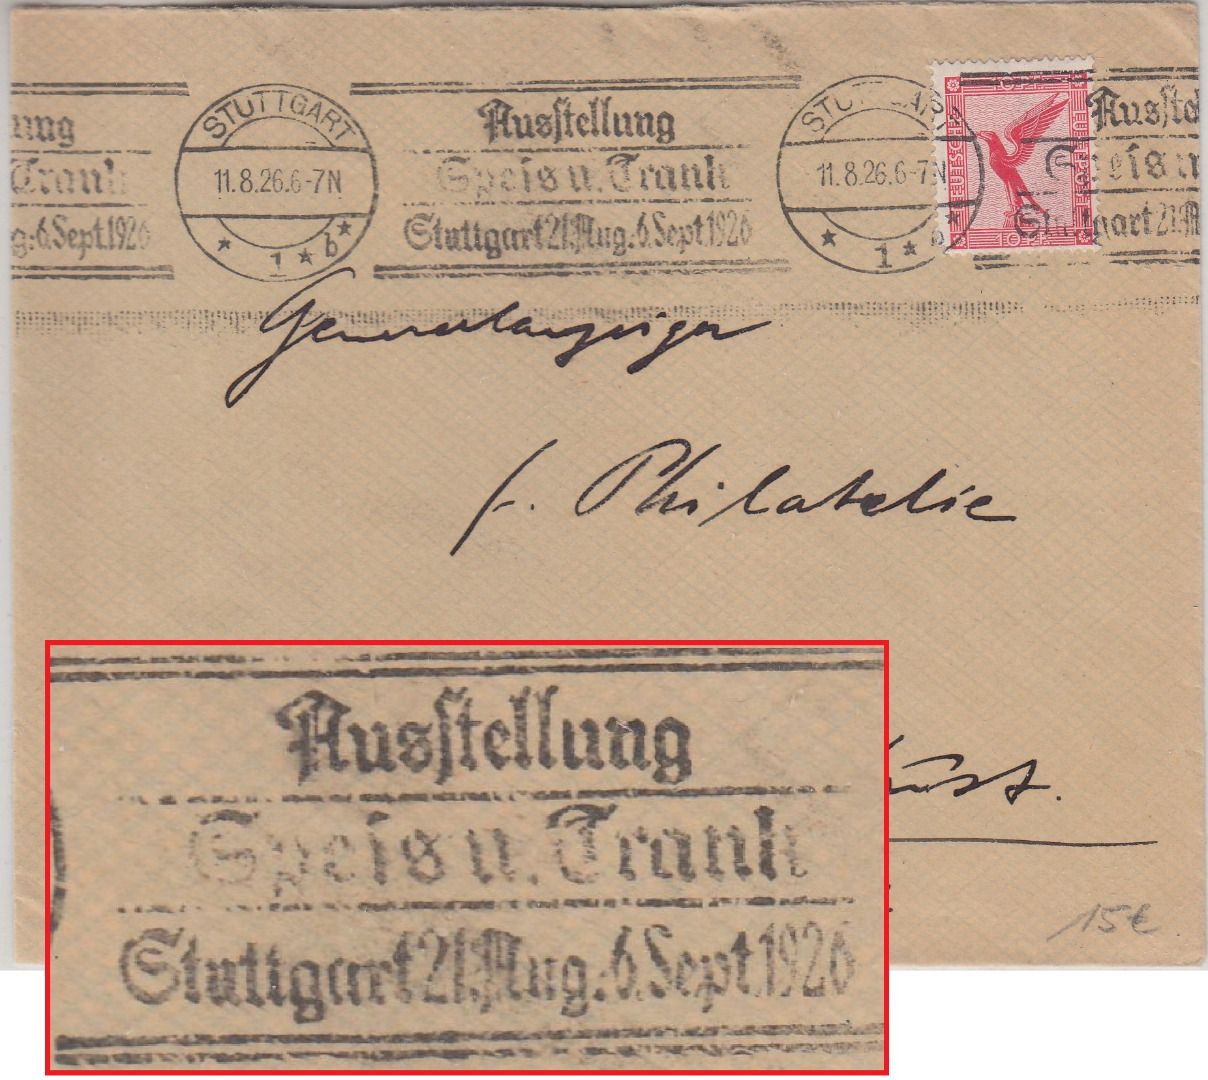 ung
Trank
g.:6.Sept.1926
STUTTGART
11.8.26.6-7N
* 1 * b *
Ausstellung
Speis u. Trank
Stuttgart 21.Aug.:6.Sept.1926
11.8.26.6-7N
* 1 *
10
10
Ausste
Speis u
Stuttgart 21.A
Generalanzeiger
f. Philatelie
15€
Ausstellung
Speis u. Trank
Stuttgart 21.Aug.:6.Sept.1926